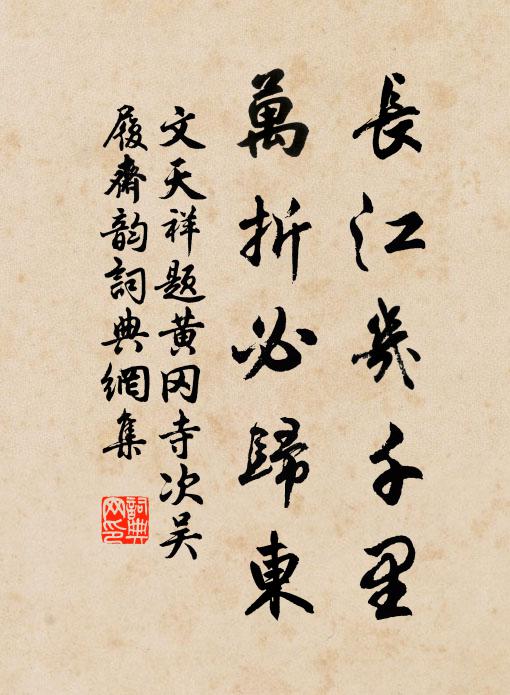 長江幾千里
萬折必歸東
文天祥題黄冈寺次吴
履齋韵詞典網集
詞典
网印